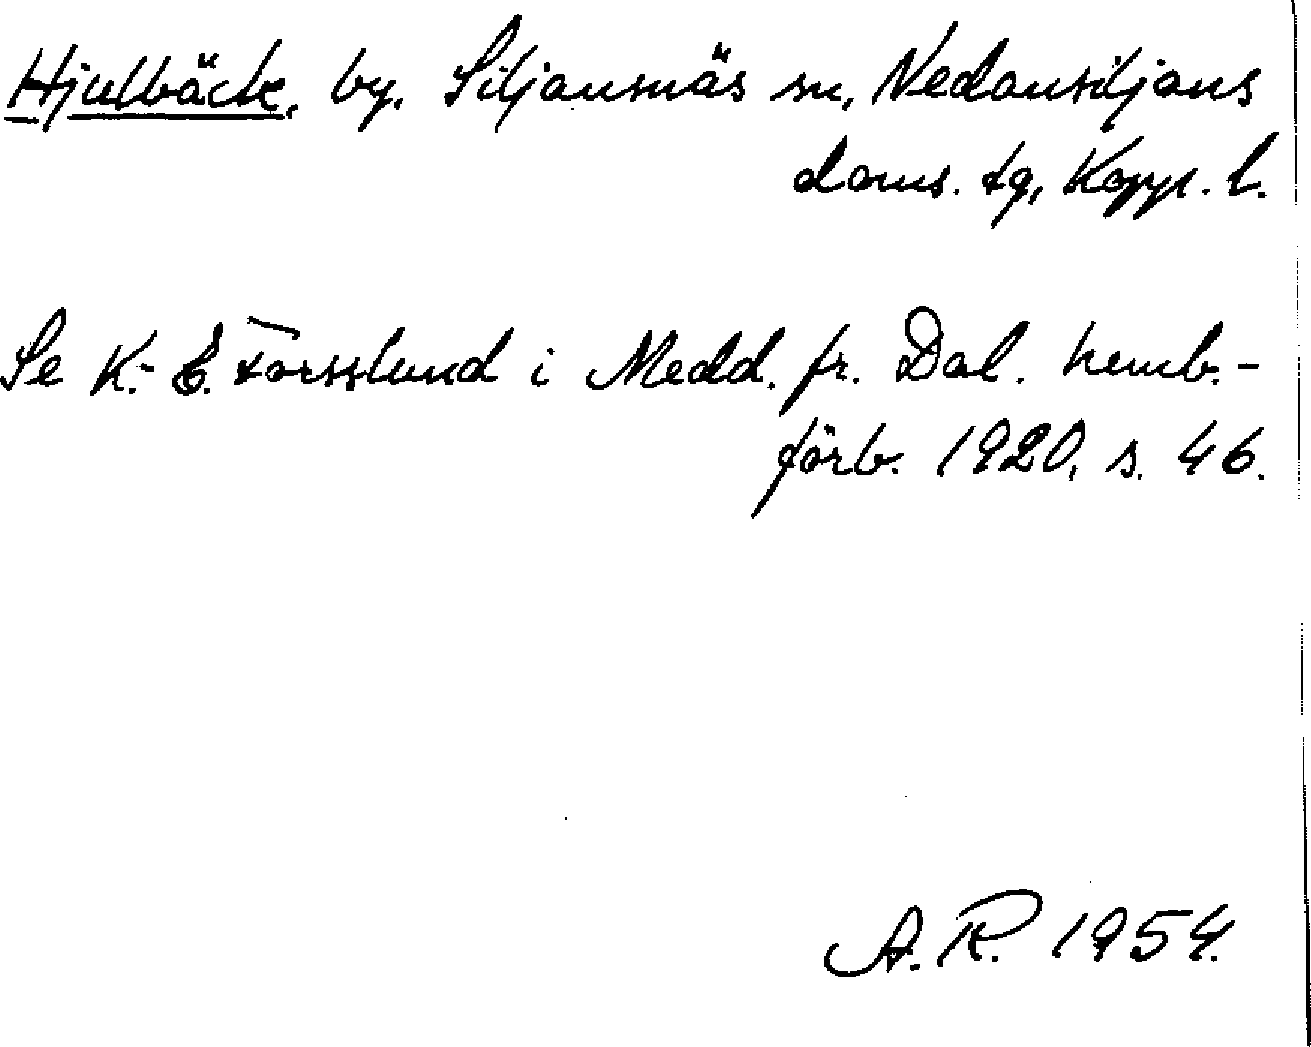 Hjulbäck, by, Siljansnäs sn, Nedansiljans
doms. tg, Kopp. l.
Se K.-E. Forsslund i Medd. fr. Dal. hemb.-
förb. 1920, s. 46.
A. R. 1954.